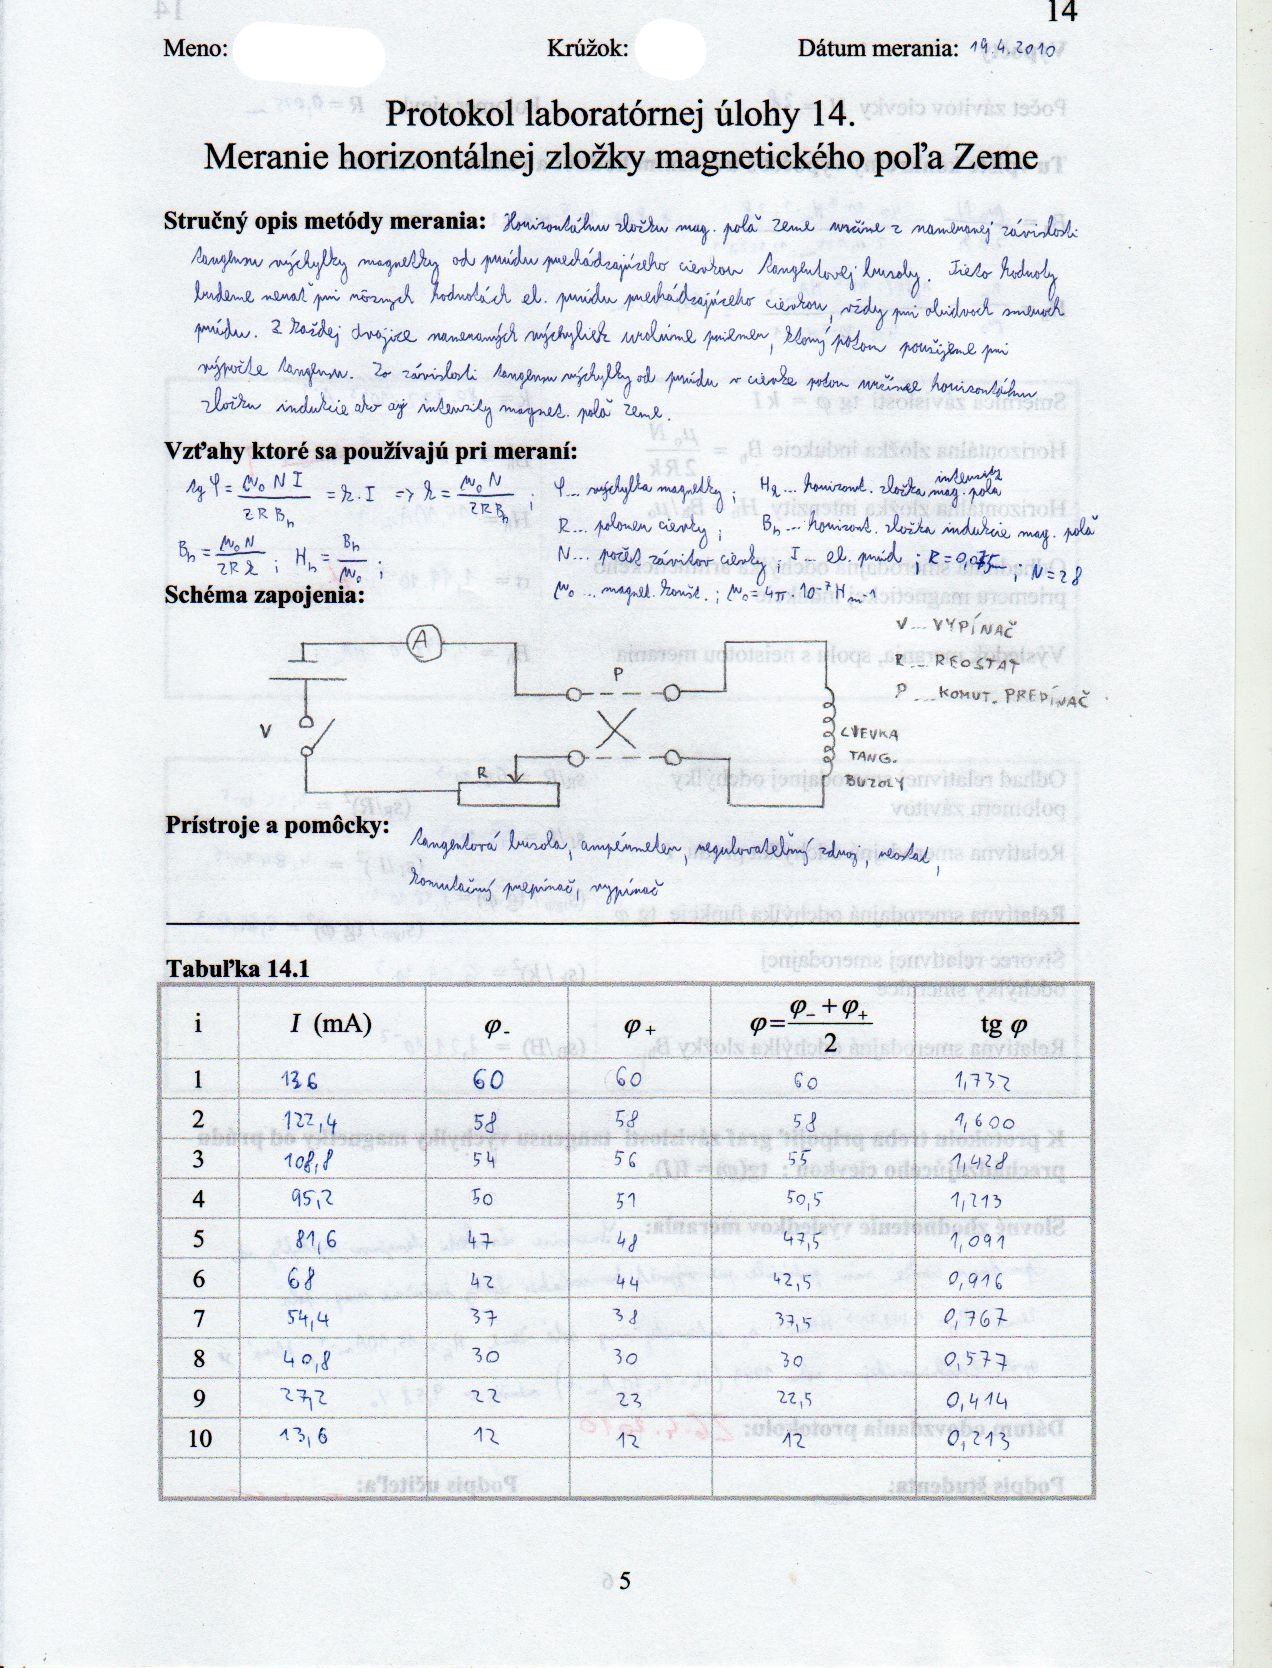 14
Meno: Krúžok: Dátum merania: 19.4.2010
Protokol laboratórnej úlohy 14.
Meranie horizontálnej zložky magnetického poľa Zeme
Stručný opis metódy merania: Horizontálnu zložku mag. pola zeme určíme z nameranej závislosti
tangensu výchylky magnetky od prúdu prechádzajúceho cievkou tangentovej buzoly. Tieto hodnoty
budeme merať pri rôznych hodnotách el. prúdu prechádzajúceho cievkou, vždy pri obidvoch smeroch
prúdu. Z každej dvojice nameraných výchyliek urobíme priemer, ktorý potom použijeme pri
výpočte tangensu. Zo závislosti tangensu výchylky od prúdu v cievke potom určíme horizontálnu
zložku indukcie ako aj intenzity magnet. pola zeme.
Vzťahy ktoré sa používajú pri meraní:
tg φ = μ₀ N I / 2 R Bₕ = k . I => k = μ₀ N / 2 R Bₕ ; φ... výchylka magnetky ; Hₕ ... horizont. zložka intenzity mag. pola
R ... polomer cievky ; Bₕ ... horizont. zložka indukcie mag. polă
Bₕ = μ₀ N / 2 R k ; Hₕ = Bₕ / μ₀ ; N ... počet závitov cievky ; I ... el. prúd ; R = 0,075 ; N = 28
Schéma zapojenia: μ₀ ... magnet. konšt. ; μ₀ = 4π . 10⁻⁷ H m⁻¹
V ... VYPÍNAČ
A
R ... REOSTAT
P
P ... KOMUT. PREPÍNAČ
V
CIEVKA
TANG.
BUZOLY
R
Prístroje a pomôcky: tangentová buzola, ampérmeter, regulovateľný zdroj, reostat,
komutačný prepínač, vypínač
Tabuľka 14.1
i I (mA) φ- φ+ φ = (φ- + φ+) / 2 tg φ
1 136 60 60 60 1,732
2 122,4 58 58 58 1,600
3 108,8 54 56 55 1,428
4 95,2 50 51 50,5 1,213
5 81,6 47 48 47,5 1,091
6 68 42 44 42,5 0,916
7 54,4 37 38 37,5 0,767
8 40,8 30 30 30 0,577
9 27,2 22 23 22,5 0,414
10 13,6 12 12 12 0,213
5